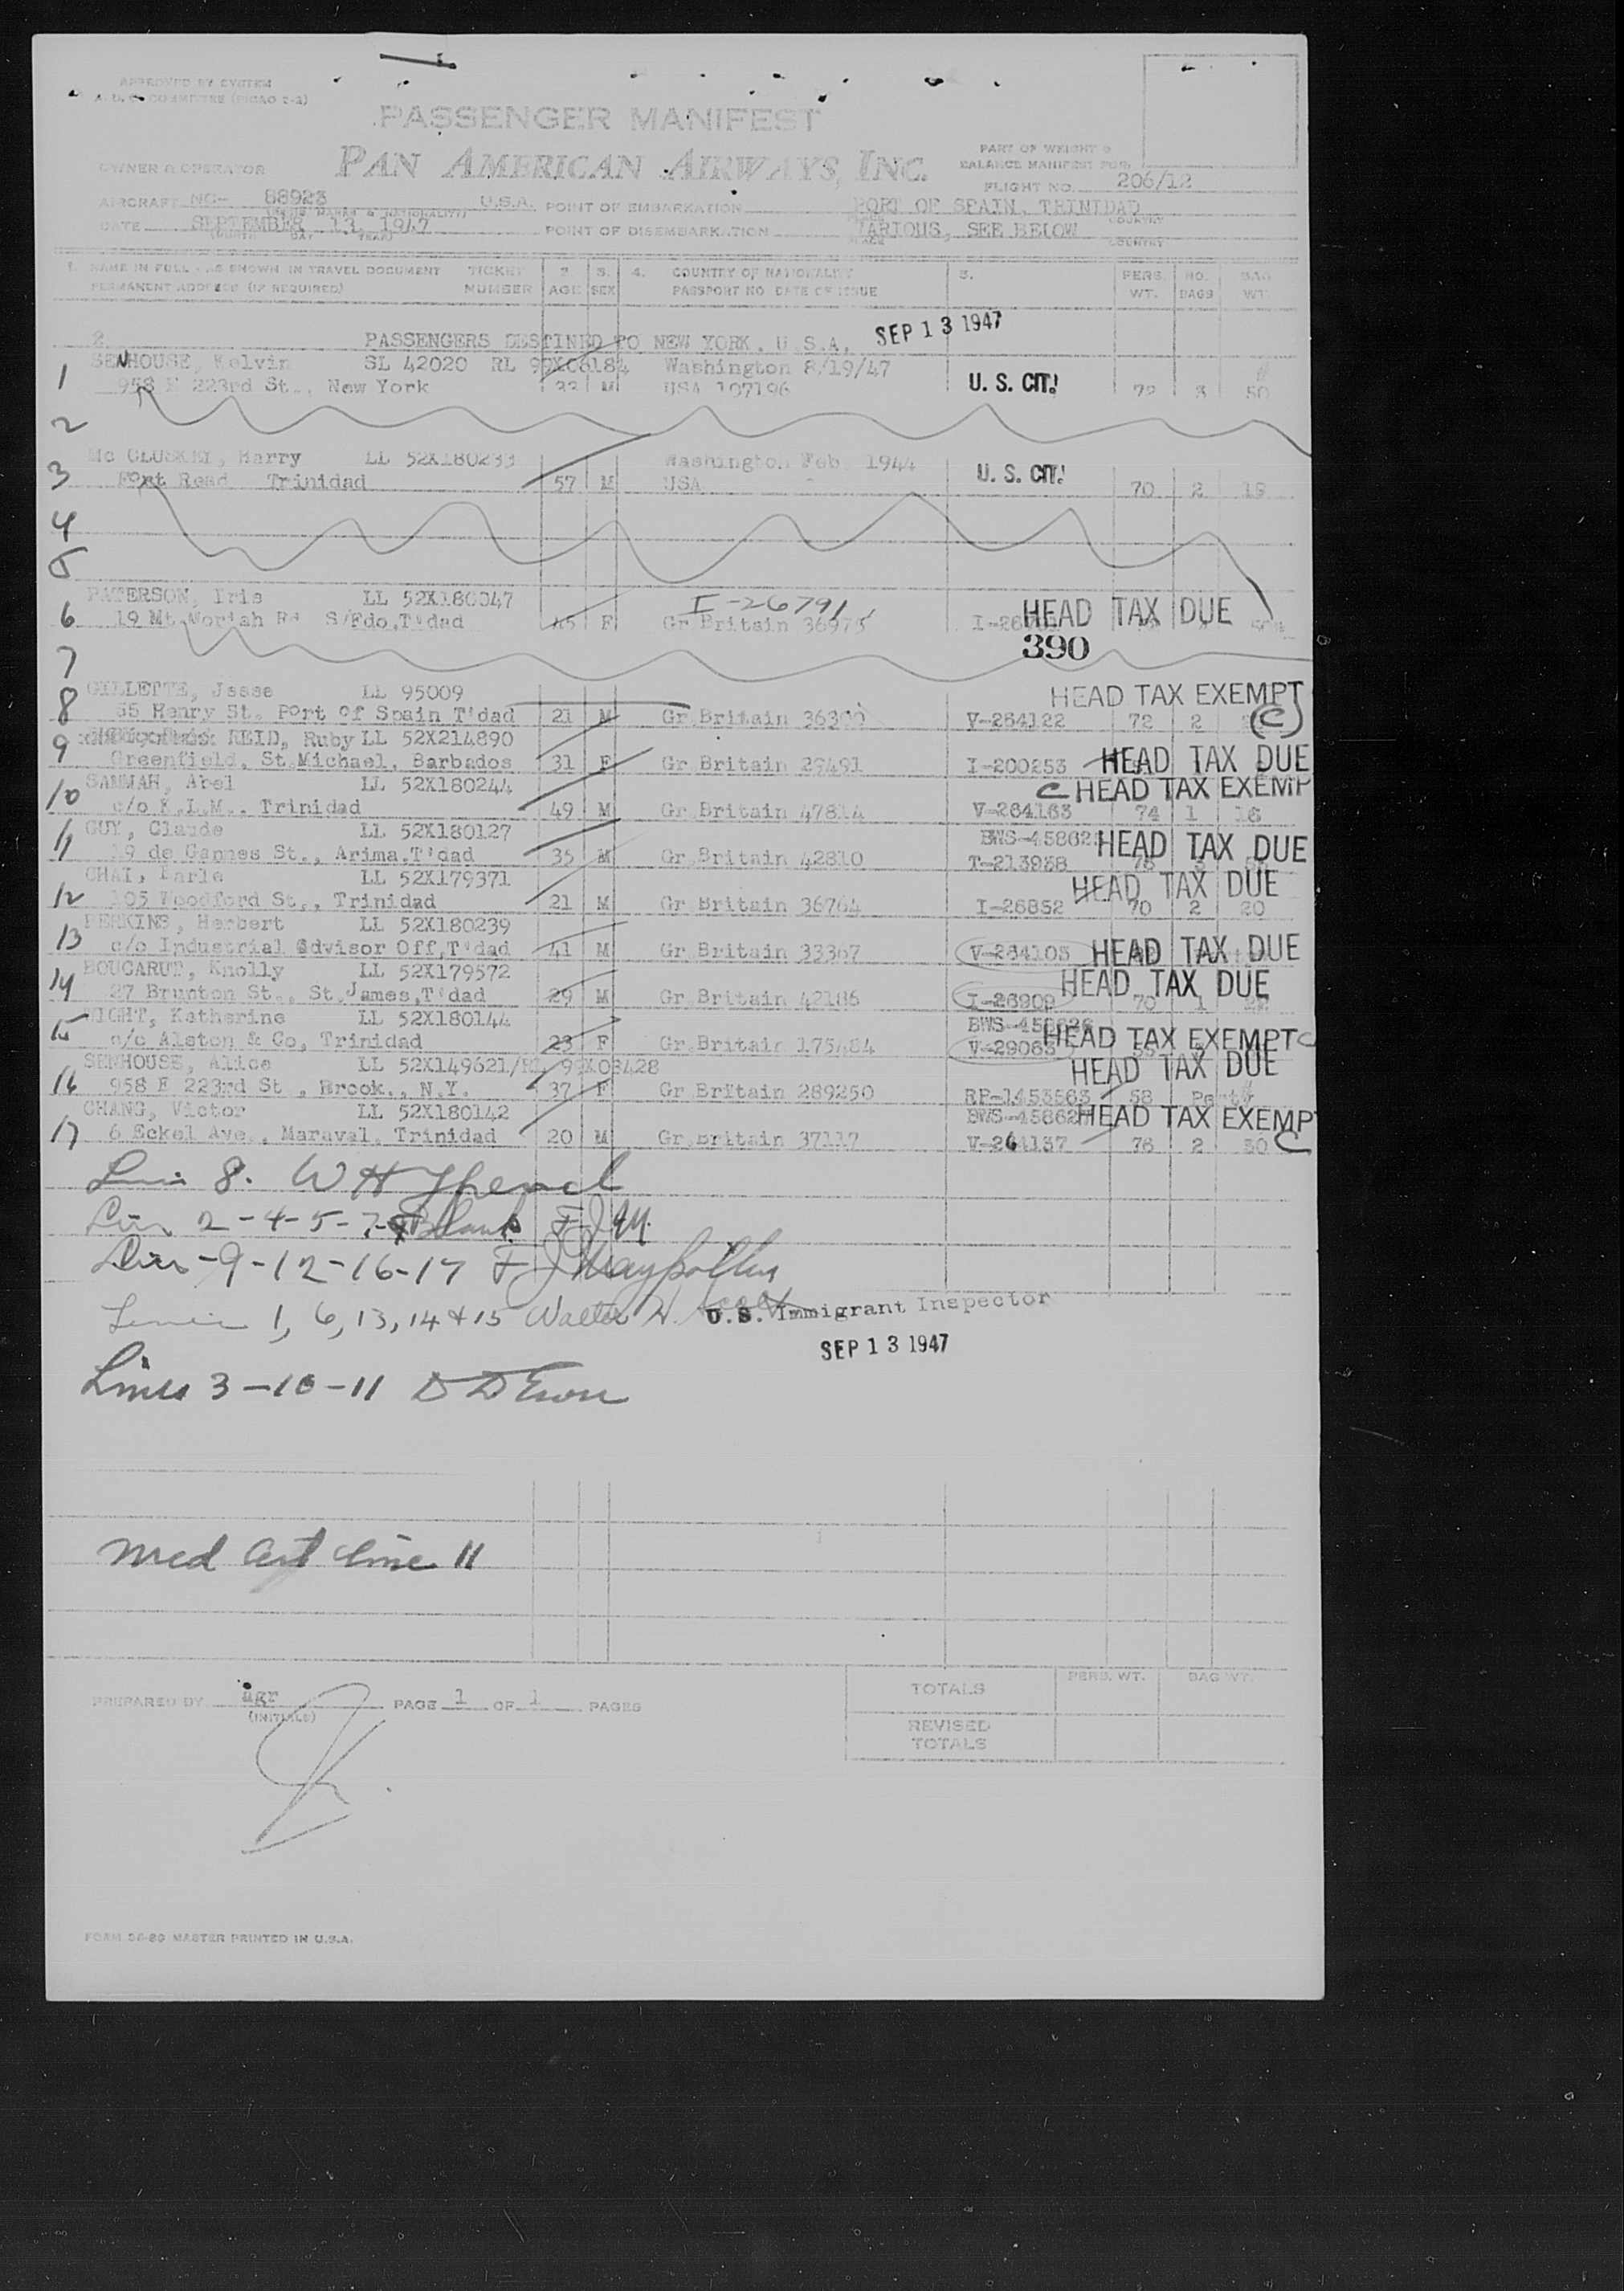 APPROVED BY SYSTEM
PASSENGER MANIFEST
PAN AMERICAN AIRWAYS, INC.
OWNER & OPERATOR
PART OF WEIGHT &
BALANCE MANIFEST FOR
FLIGHT NO. 206/12
AIRCRAFT NC- 88923 U.S.A. POINT OF EMBARKATION PORT OF SPAIN, TRINIDAD
DATE SEPTEMBER 13, 1947 POINT OF DISEMBARKATION VARIOUS, SEE BELOW
1. NAME IN FULL - AS SHOWN IN TRAVEL DOCUMENT TICKET 2. 3. 4. COUNTRY OF NATIONALITY 5. PERS. NO. BAG
PERMANENT ADDRESS (IF REQUIRED) NUMBER AGE SEX PASSPORT NO. DATE OF ISSUE WT. BAGS WT.
2 PASSENGERS DESTINED TO NEW YORK, U.S.A. SEP 13 1947
SENHOUSE, Kelvin SL 42020 RL Washington 8/19/47
1 958 E 223rd St., New York 33 M USA 107196 U. S. CIT. 72 3 50
2
Mc CLUSKEY, Harry LL 52X180233 Washington Feb 1944
3 Trinidad 57 M USA U. S. CIT. 70 2 19
4
5
PATERSON, Iris LL 52X180047 I-26791
6 19 Mt. Moriah Rd S/Fdo, T'dad 45 F Gr Britain 36975 HEAD TAX DUE
390
7
GILLETTE, Jesse LL 95009 HEAD TAX EXEMPT
8 55 Henry St. Port of Spain T'dad 21 M Gr Britain V-264122 72 2 C
REID, Ruby LL 52X214890
9 Greenfield, St. Michael, Barbados 31 F Gr Britain 29491 I-200253 HEAD TAX DUE
SAMMAH, Abel LL 52X180244 C HEAD TAX EXEMP
10 c/o K.L.M., Trinidad 49 M Gr Britain 47814 V-264163 74 1 16
GUY, Claude LL 52X180127 HEAD TAX DUE
11 19 de Gannes St., Arima, T'dad 35 M Gr Britain 42810
CHAI, Earle LL 52X179371 HEAD TAX DUE
12 105 Woodford St., Trinidad 21 M Gr Britain 36764 I-26852 70 2 20
PERKINS, Herbert LL 52X180239
13 c/o Industrial Advisor Off, T'dad 41 M Gr Britain 33367 V-264105 HEAD TAX DUE
BOUCARUT, Knolly LL 52X179572 HEAD TAX DUE
14 27 Brunton St., St. James, T'dad 29 M Gr Britain 42186 I-26909 70 1
WIGHT, Katherine LL 52X180144
15 c/o Alston & Co, Trinidad 23 F Gr Britain 175484 V-29063 HEAD TAX EXEMPT C
SENHOUSE, Alice LL 52X149621/RL HEAD TAX DUE
16 958 E 223rd St., Brook., N.Y. 37 F Gr Britain 289250 RP-1453563 58
CHANG, Victor LL 52X180142 HEAD TAX EXEMP
17 6 Eckel Ave., Maraval, Trinidad 20 M Gr Britain 37117 V-264137 76 2 30 C
Line 8. W H
Lin 2-4-5-7- Blank F J M.
Lin-9-12-16-17 F J
Lines 1, 6, 13, 14 + 15 Walter H. U.S. Immigrant Inspector
SEP 13 1947
Lines 3-10-11 D D
Med Cert line 11
PREPARED BY agr PAGE 1 OF 1 PAGES
(INITIALS)
TOTALS PERS. WT. BAG WT.
REVISED
TOTALS
FORM 36-80 MASTER PRINTED IN U.S.A.